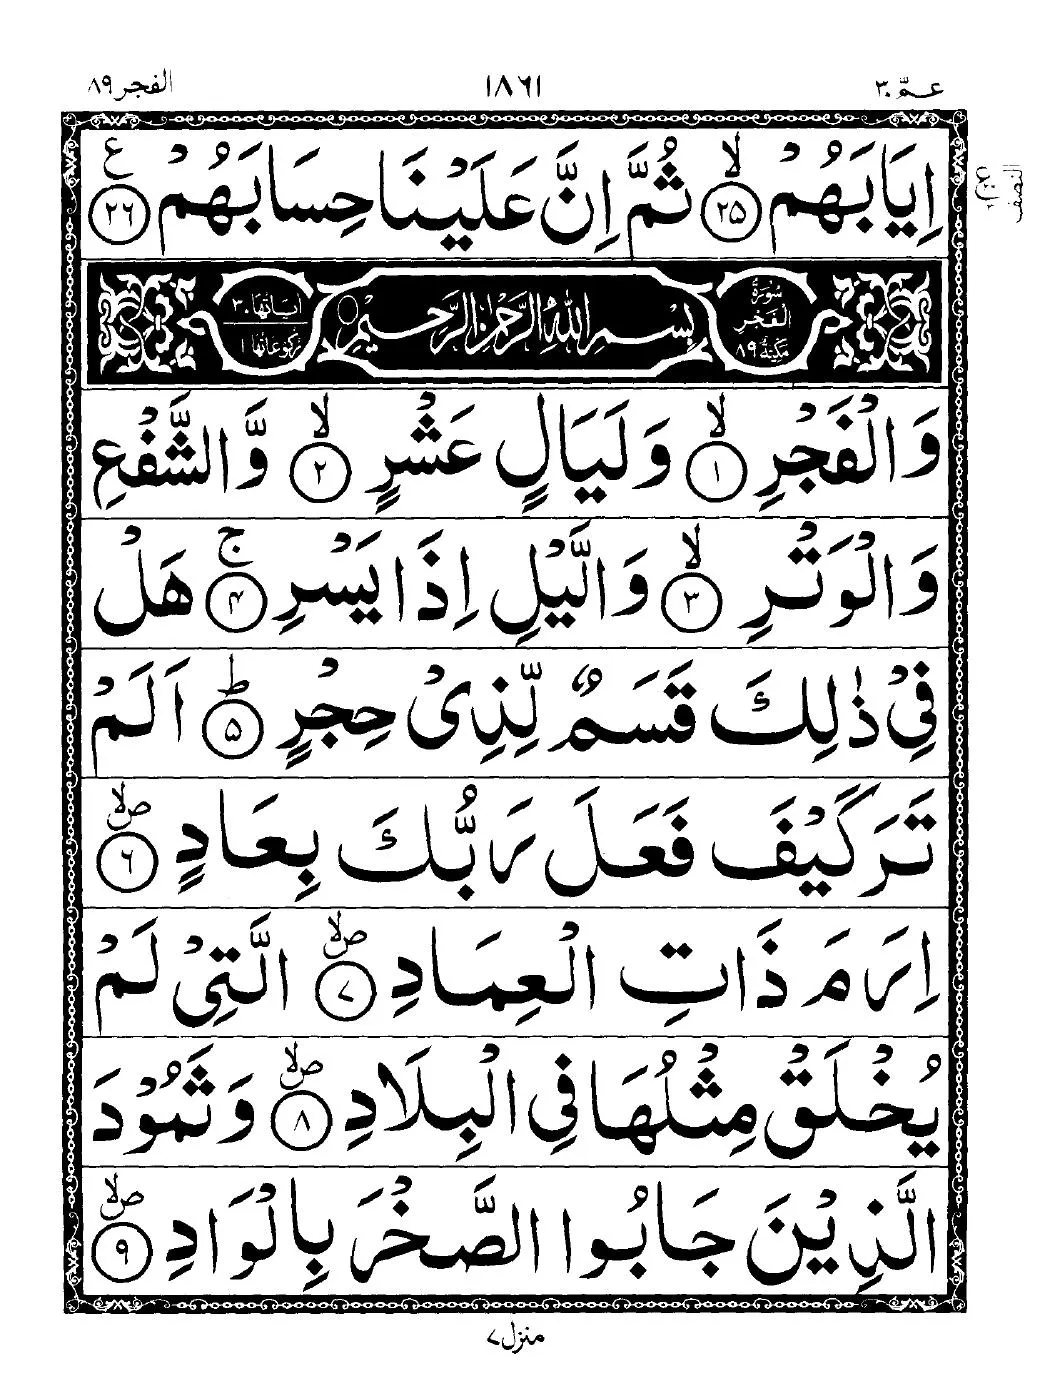 عـمّ ٣٠ ١٨٦١ الفجر ٨٩
اِيَابَهُمْ ۙ﴿٢٥﴾ ثُمَّ اِنَّ عَلَيْنَا حِسَابَهُمْ ﴿٢٦﴾ ع
النصف
سُوْرَةُ الْفَجْرِ مَكِّيَّةٌ ٨٩ بِسْمِ اللّٰهِ الرَّحْمٰنِ الرَّحِيْمِ اٰيَاتُهَا ٣٠ رُكُوْعَاتُهَا ١
وَالْفَجْرِ ۙ﴿١﴾ وَلَيَالٍ عَشْرٍ ۙ﴿٢﴾ وَّالشَّفْعِ
وَالْوَتْرِ ۙ﴿٣﴾ وَالَّيْلِ اِذَا يَسْرِ ۚ﴿٤﴾ هَلْ
فِيْ ذٰلِكَ قَسَمٌ لِّذِيْ حِجْرٍ ؕ﴿٥﴾ اَلَمْ
تَرَ كَيْفَ فَعَلَ رَبُّكَ بِعَادٍ ۪ۙ﴿٦﴾
اِرَمَ ذَاتِ الْعِمَادِ ۪ۙ﴿٧﴾ الَّتِيْ لَمْ
يُخْلَقْ مِثْلُهَا فِي الْبِلَادِ ۪ۙ﴿٨﴾ وَثَمُوْدَ
الَّذِيْنَ جَابُوا الصَّخْرَ بِالْوَادِ ۪ۙ﴿٩﴾
منزل ٧